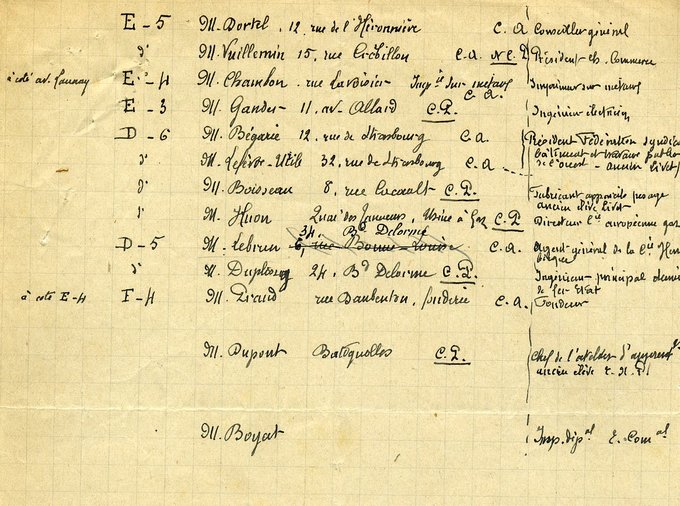 E-5 M. Dortel, 12, rue de l'Héronnière C.A Conseiller général
d° M. Vuillemin 15, rue Crébillon C.A N.C.P Président ch. Commerce
à côté av. Launay E-4 M. Chambon, rue Lavoisier Imp ie sur métaux C.A. Imprimeur sur métaux
E-3 M. Gander 11, av. Allard C.P. Ingénieur électricien
D-6 M. Bégarie 12, rue de Strasbourg C.A. Président Fédération syndicale
bâtiment et travaux publics
d° M. Lefèvre-Utile 32, rue de Strasbourg C.A de l'ouest - ancien Livet
d° M. Boisseau 8, rue C.P. Fabricant appareils pesage
ancien élève Livet
d° M. Huon Quai des Tanneurs, Usine à Gaz C.P Directeur Cie européenne gaz
34, Bd Delorme
D-5 M. Lebrun 6, rue Bonne-Louise C.A. Agent général de la Cie
d° M. 24, Bd Delorme C.P. Ingénieur principal
de fer Etat
à côté E-4 F-4 M. Giraud rue Baubenton, fonderie C.A. Fondeur
M. Dupont Batignolles C.P. Chef de l'atelier d'
ancien élève
M. Boyat Insp. dép al E. Com al